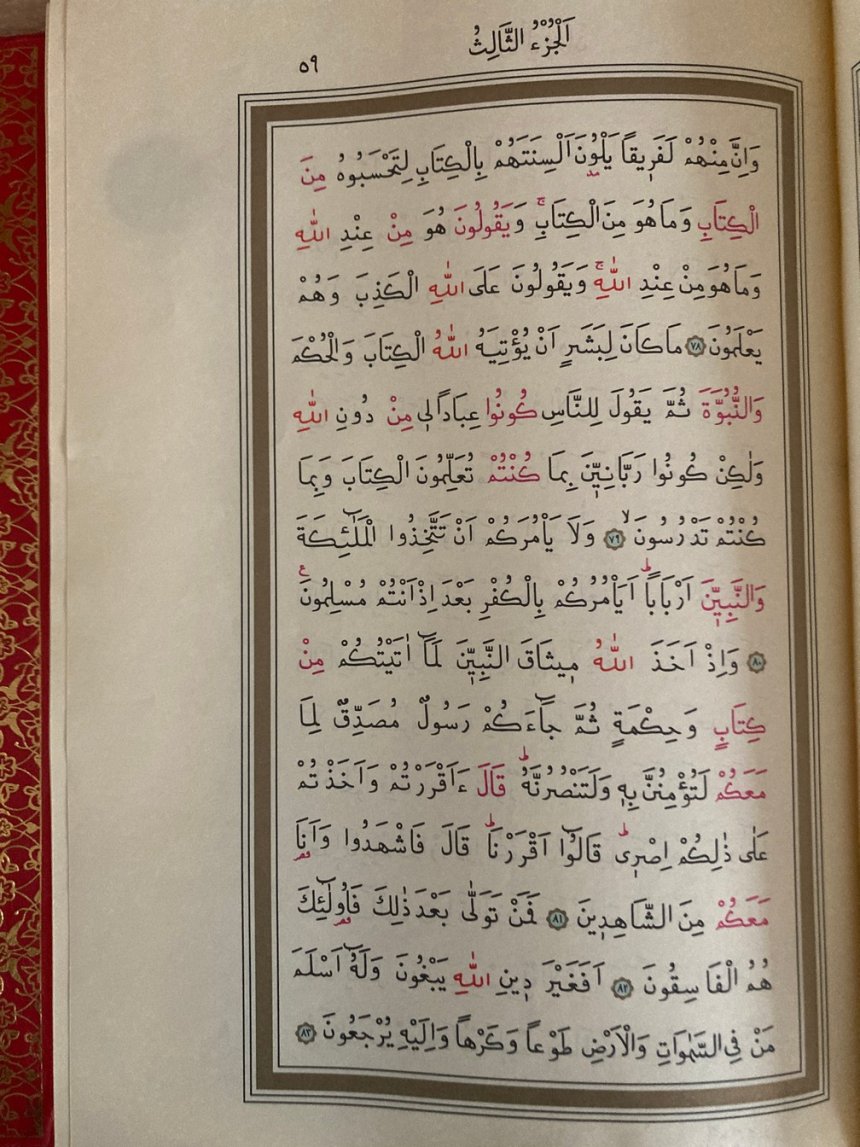 اَلْجُزْءُ الثَّالِثُ
٥٩
وَاِنَّ مِنْهُمْ لَفَرٖيقاً يَلْوُ۫نَ اَلْسِنَتَهُمْ بِالْكِتَابِ لِتَحْسَبُوهُ مِنَ
الْكِتَابِ وَمَا هُوَ مِنَ الْكِتَابِۚ وَيَقُولُونَ هُوَ مِنْ عِنْدِ اللّٰهِ
وَمَا هُوَ مِنْ عِنْدِ اللّٰهِۚ وَيَقُولُونَ عَلَى اللّٰهِ الْكَذِبَ وَهُمْ
يَعْلَمُونَ ﴿٧٨﴾ مَا كَانَ لِبَشَرٍ اَنْ يُؤْتِيَهُ اللّٰهُ الْكِتَابَ وَالْحُكْمَ
وَالنُّبُوَّةَ ثُمَّ يَقُولَ لِلنَّاسِ كُونُوا عِبَاداً لٖى مِنْ دُونِ اللّٰهِ
وَلٰكِنْ كُونُوا رَبَّانِيّٖنَ بِمَا كُنْتُمْ تُعَلِّمُونَ الْكِتَابَ وَبِمَا
كُنْتُمْ تَدْرُسُونَۙ ﴿٧٩﴾ وَلَا يَاْمُرَكُمْ اَنْ تَتَّخِذُوا الْمَلٰٓئِكَةَ
وَالنَّبِيّٖنَ اَرْبَاباًؕ اَيَاْمُرُكُمْ بِالْكُفْرِ بَعْدَ اِذْ اَنْتُمْ مُسْلِمُونَ ع
﴿٨٠﴾ وَاِذْ اَخَذَ اللّٰهُ مٖيثَاقَ النَّبِيّٖنَ لَمَٓا اٰتَيْتُكُمْ مِنْ
كِتَابٍ وَحِكْمَةٍ ثُمَّ جَٓاءَكُمْ رَسُولٌ مُصَدِّقٌ لِمَا
مَعَكُمْ لَتُؤْمِنُنَّ بِهٖ وَلَتَنْصُرُنَّهُؕ قَالَ ءَاَقْرَرْتُمْ وَاَخَذْتُمْ
عَلٰى ذٰلِكُمْ اِصْرٖىؕ قَالُٓوا اَقْرَرْنَاؕ قَالَ فَاشْهَدُوا وَاَنَا۬
مَعَكُمْ مِنَ الشَّاهِدٖينَ ﴿٨١﴾ فَمَنْ تَوَلّٰى بَعْدَ ذٰلِكَ فَاُو۬لٰٓئِكَ
هُمُ الْفَاسِقُونَ ﴿٨٢﴾ اَفَغَيْرَ دٖينِ اللّٰهِ يَبْغُونَ وَلَهُٓ اَسْلَمَ
مَنْ فِى السَّمٰوَاتِ وَالْاَرْضِ طَوْعاً وَكَرْهاً وَاِلَيْهِ يُرْجَعُونَ ﴿٨٣﴾